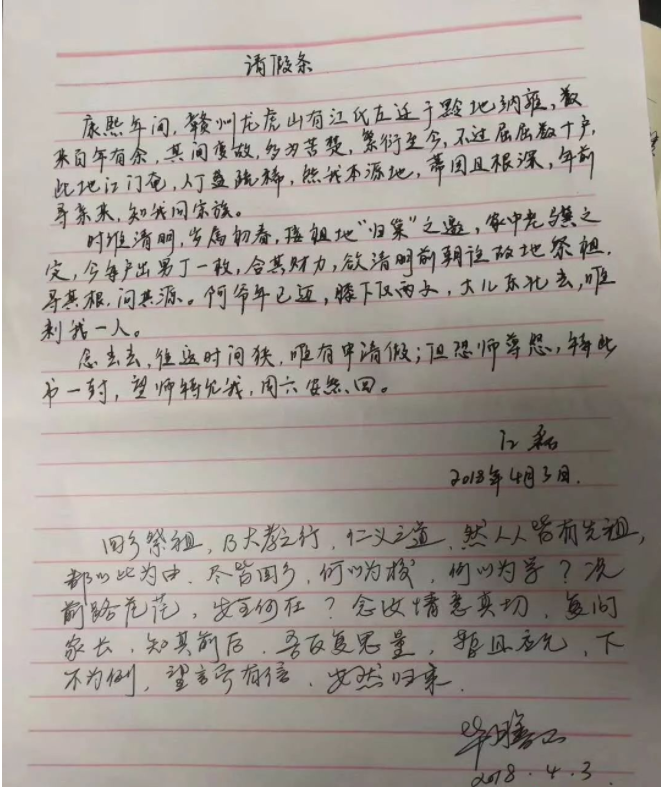 请假条
康熙年间,赣州龙虎山有江氏左迁于黔地纳雍,数
来百年有余,其间变故,多为苦楚,繁衍至今,不过屈屈数十户,
此地江门奄,人丁益疏稀,然我本源地,蒂固且根深,年前
寻亲来,知我同宗族。
时维清明,岁属初春,接祖地“归巢”之邀,家中老翁奠之
定,今每户出男丁一枚,合其财力,欲清明前朝往故地祭祖,
寻其根,问其源。阿爷年已迈,膝下仅两子,大儿东北去,唯
剩我一人。
念去去,往返时间狭,唯有申请假;但恐师尊怒,特此
书一封,望师特允我,周六安然回。
江磊
2018年4月3日.
回乡祭祖,乃大孝之行,仁义之道,然人人皆有先祖,
都以此为由,尽皆回乡,何以为校,何以为学?况
前路茫茫,安全何在?念汝情意真切,复问
家长,知其前后,吾反复思量,暂且应允,下
不为例,望言守有信,安然归来.
2018.4.3